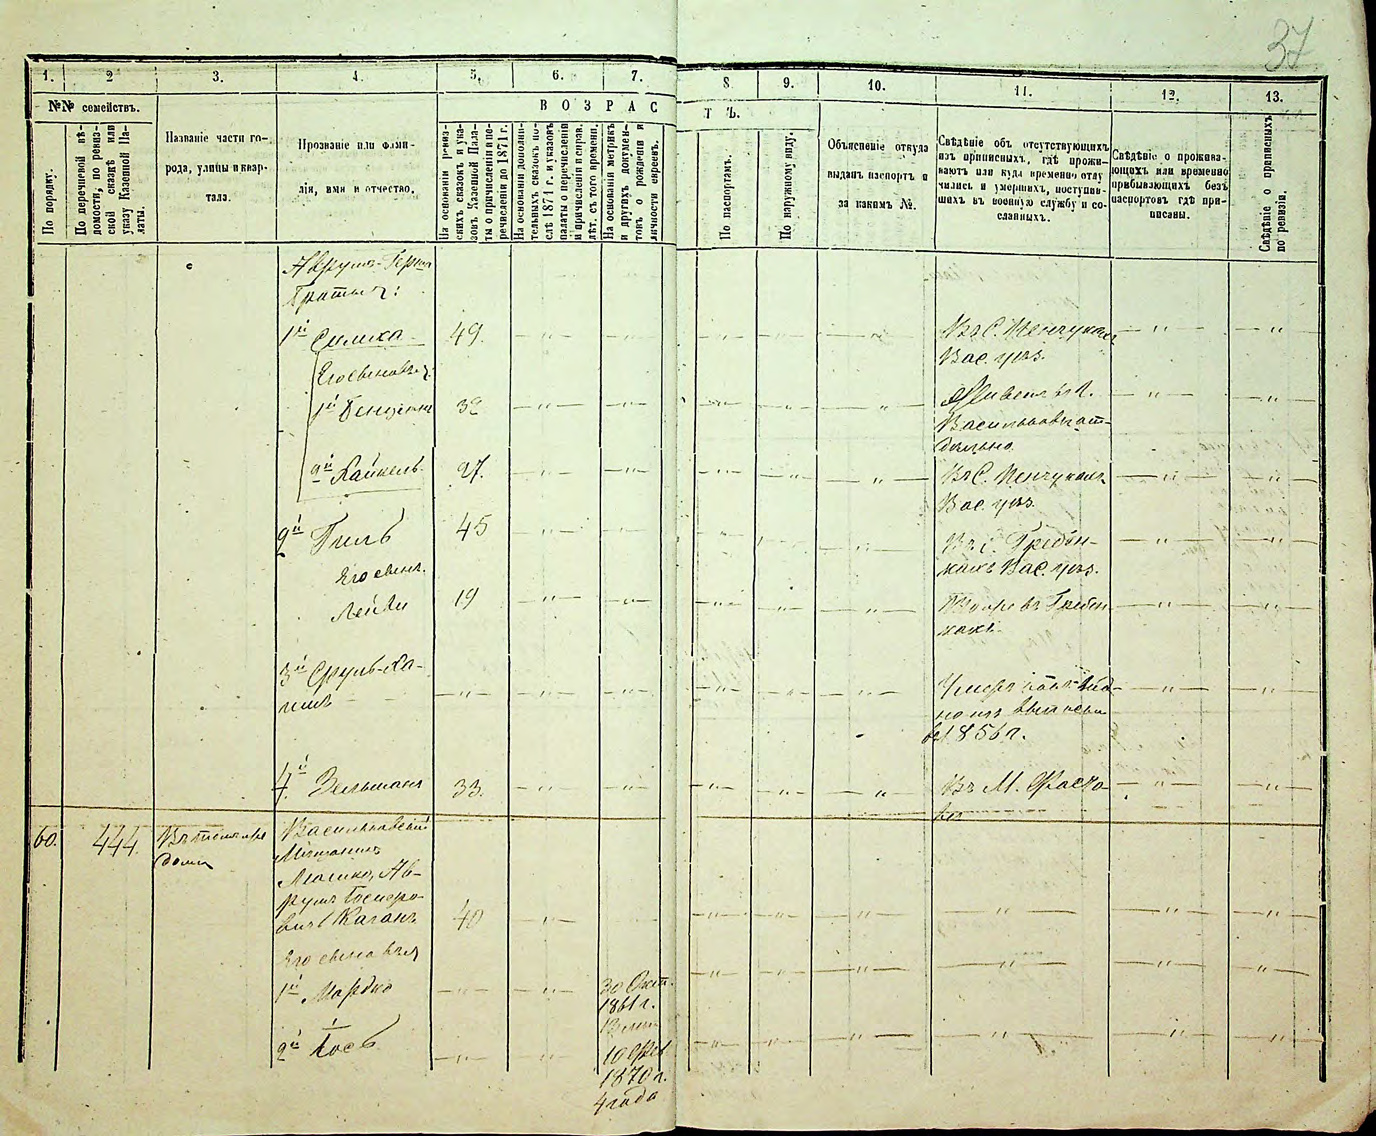 37
1. 2 3. 4. 5. 6. 7. 8 9. 10. 11. 12. 13.
№№ семействъ.
В О З Р А С Т Ъ.
По порядку.
По перечневой вѣ-
домости, по ревиз-
ской сказкѣ или
указу Казенной Па-
латы.
Названіе части го-
рода, улицы и квар-
тала.
Прозваніе или фами-
лія, имя и отчество.
На основаніи ревиз-
скихъ сказокъ и ука-
зовъ Казенной Пала-
ты о причисленіи и пе-
речисленіи до 1871 г.
На основаніи дополни-
тельныхъ сказокъ по-
слѣ 1871 г. и указовъ
палаты о перечисленіи
и причисленіи и справ.
лѣт. съ того времени.
На основаніи метрикъ
и другихъ докумен-
товъ о рожденіи и
личности евреевъ.
По паспортамъ.
По наружному виду.
Объясненіе откуда
выданъ паспортъ и
за какимъ №.
Свѣдѣніе объ отсутствующихъ
изъ приписныхъ, гдѣ прожи-
ваютъ или куда временно отлу
чились и умершихъ, поступив-
шихъ въ военную службу и со-
сланныхъ.
Свѣдѣніе о прожива-
ющихъ или временно
прибывающихъ безъ
паспортовъ гдѣ при-
писаны.
Свѣдѣніе о приписныхъ
по ревизіи.
Аврумъ-Герш
Братья:
1й Симха 49. Въ С.
Вас. уѣз.
Его сыновья:
1й 32 Живетъ въ г.
Васильковѣ от-
дѣльно.
2й Хайкель 27. Въ С.
Вас. уѣз.
2й Гиль 45 Въ с. Гребен-
кахъ Вас. уѣз.
Его сынъ
Лейби 19 Гребен-
кахъ
3й Сруль-Ха-
имъ
въ 1856 г.
4й Зельманъ 33. Въ М. Фасто-
вѣ
60. 444. Въ
домѣ
Васильковскій
Мѣщанинъ
Мошко, Ав-
румъ
вичъ Каганъ 40
Его сыновья
1й Мордко 30 Окт.
1861 г.
13 лѣт
2й Іосъ 10 Фев
1870 г.
4 года